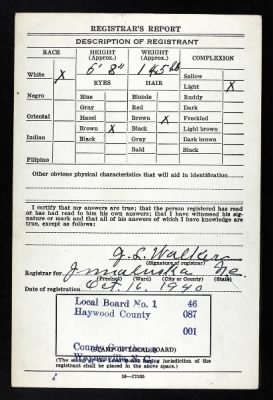 REGISTRAR'S REPORT
DESCRIPTION OF REGISTRANT
RACE HEIGHT (Approx.) WEIGHT (Approx.) COMPLEXION
5' 8" 145 lb
White X EYES HAIR Sallow
Light X
Negro Blue Blonde Ruddy
Gray Red Dark
Oriental Hazel Brown X Freckled
Brown X Black Light brown
Indian Black Gray Dark brown
Bald Black
Filipino
Other obvious physical characteristics that will aid in identification
I certify that my answers are true; that the person registered has read or has had read to him his own answers; that I have witnessed his signature or mark and that all of his answers of which I have knowledge are true, except as follows:
J. L. Walker
(Signature of registrar)
Registrar for Junaluska NC
(Precinct) (Ward) (City or County) (State)
Date of registration Oct. 16, 1940
Local Board No. 1 46
Haywood County 087
001
County Courthouse
Waynesville N.C.
(STAMP OF LOCAL BOARD)
(The stamp of the Local Board having jurisdiction of the registrant shall be placed in the above space.)
16—17105